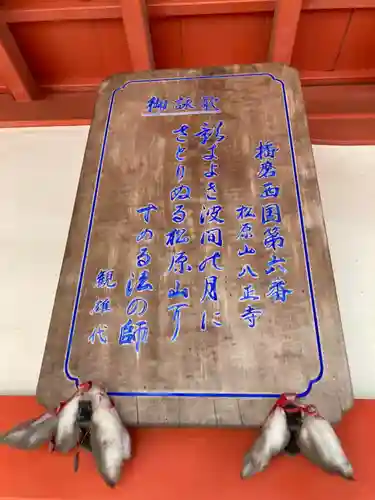 播磨西国第六番
松原山八正寺
御詠歌
影きよき波間の月に
さとりぬる松原山て
すめる法の師
観雄代